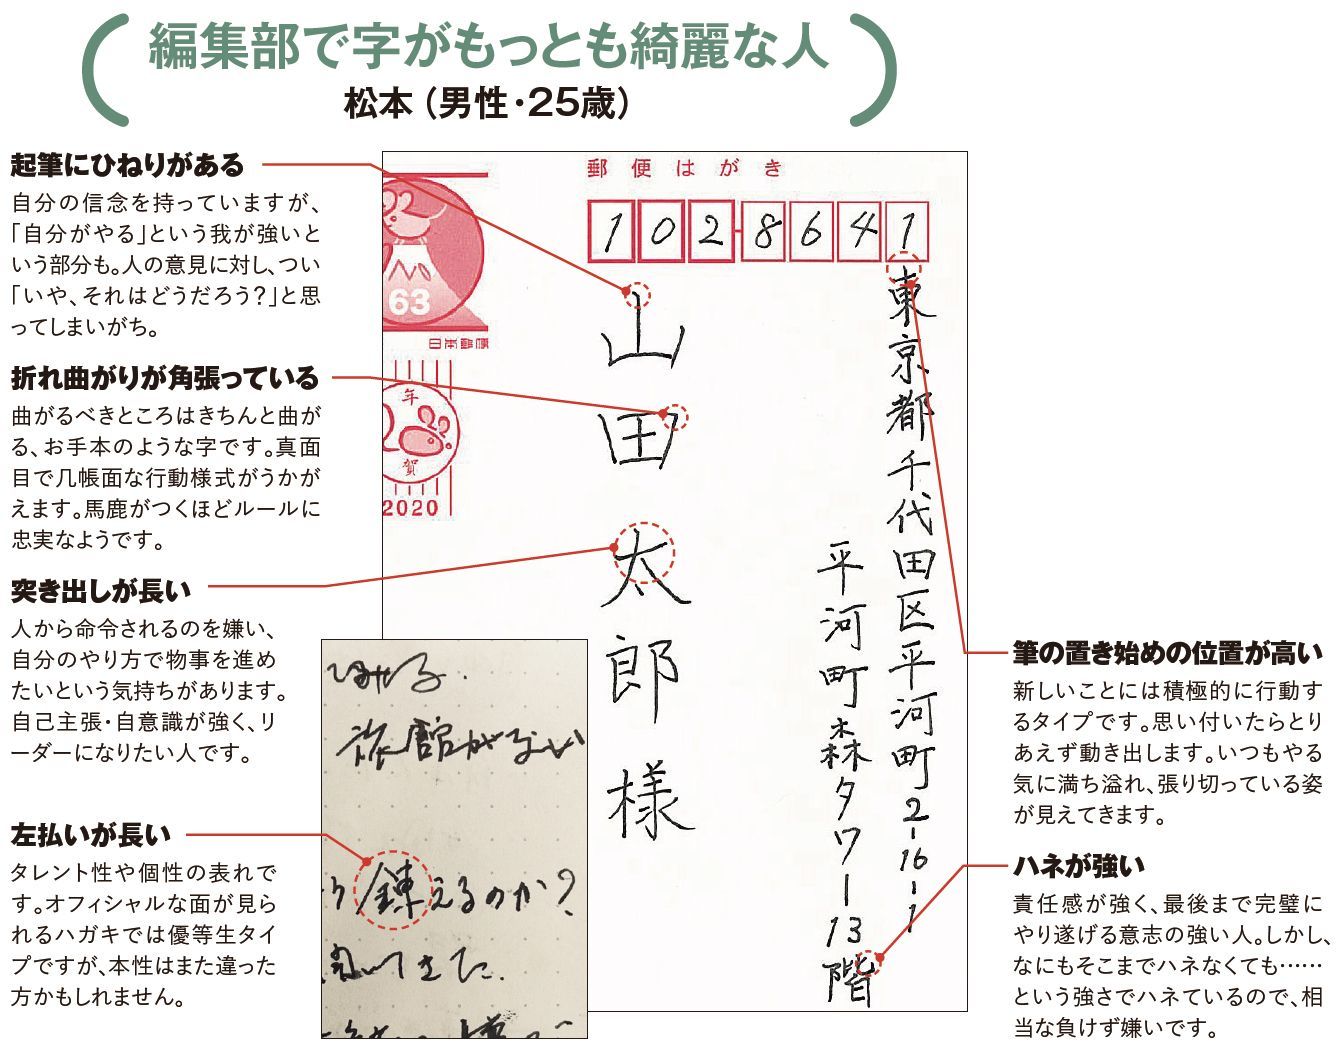 編集部で字がもっとも綺麗な人
松本（男性・25歳）
起筆にひねりがある
自分の信念を持っていますが、
「自分がやる」という我が強いと
いう部分も。人の意見に対し、つい
「いや、それはどうだろう？」と思
ってしまいがち。
折れ曲がりが角張っている
曲がるべきところはきちんと曲が
る、お手本のような字です。真面
目で几帳面な行動様式がうかが
えます。馬鹿がつくほどルールに
忠実なようです。
突き出しが長い
人から命令されるのを嫌い、
自分のやり方で物事を進め
たいという気持ちがあります。
自己主張・自意識が強く、リ
ーダーになりたい人です。
左払いが長い
タレント性や個性の表れで
す。オフィシャルな面が見ら
れるハガキでは優等生タイ
プですが、本性はまた違った
方かもしれません。
郵便はがき
102-8641
東京都千代田区平河町2-16-1
平河町森タワー13階
山田太郎様
63
日本郵便
年
賀
2020
旅館がない
鍊えるのか?
筆の置き始めの位置が高い
新しいことには積極的に行動す
るタイプです。思い付いたらとり
あえず動き出します。いつもやる
気に満ち溢れ、張り切っている姿
が見えてきます。
ハネが強い
責任感が強く、最後まで完璧に
やり遂げる意志の強い人。しかし、
なにもそこまでハネなくても……
という強さでハネているので、相
当な負けず嫌いです。